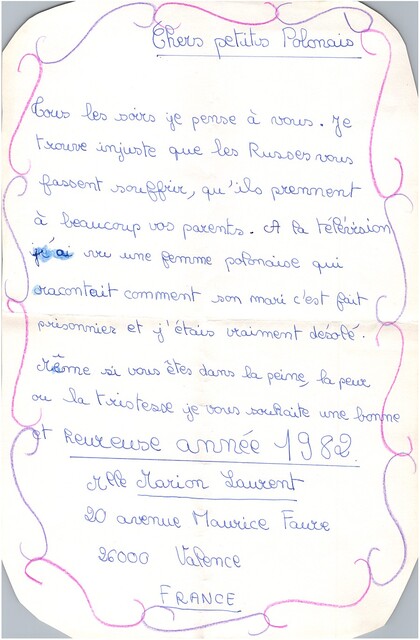 Chers petits Polonais
Tous les soirs je pense à vous. Je
trouve injuste que les Russes vous
fassent souffrir, qu'ils prennent
à beaucoup vos parents. A la télévision
j'ai vu une femme polonaise qui
racontait comment son mari c'est fait
prisonnier et j'étais vraiment désolé.
Même si vous êtes dans la peine, la peur
ou la tristesse je vous souhaite une bonne
et heureuse année 1982
Melle Marion Laurent
20 avenue Maurice Faure
26000 Valence
FRANCE